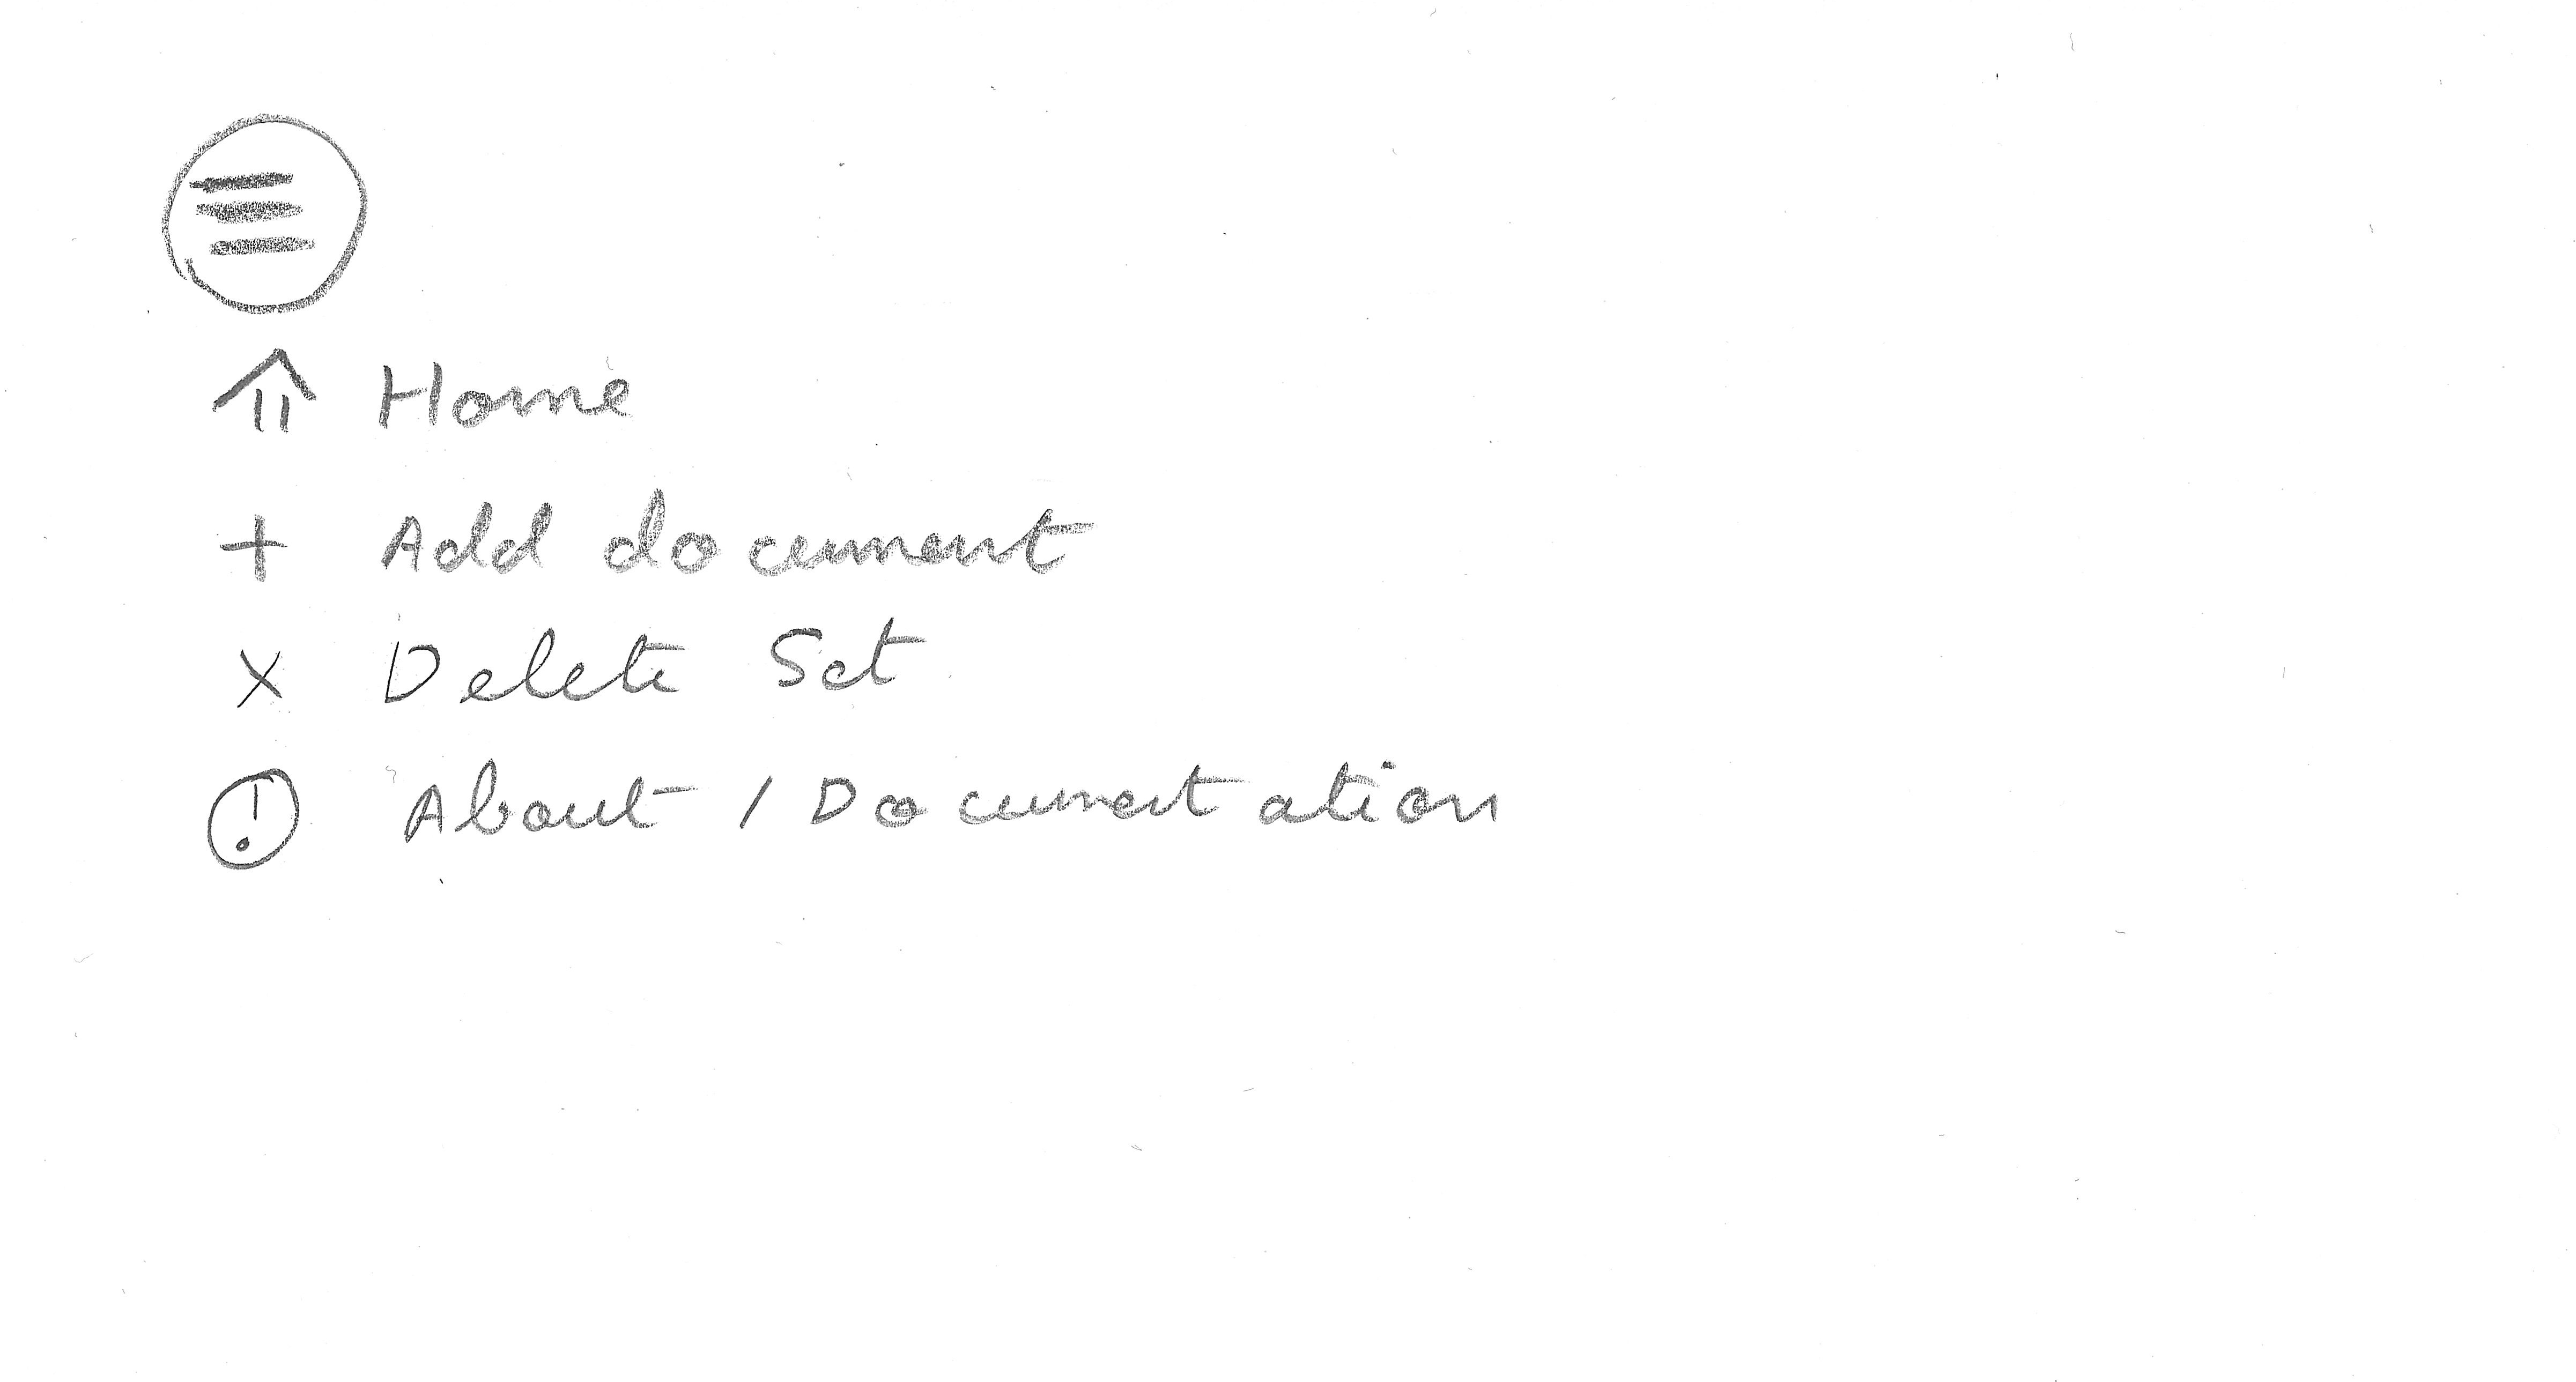 Home
+ Add document
x Delete Set
! About / Documentation